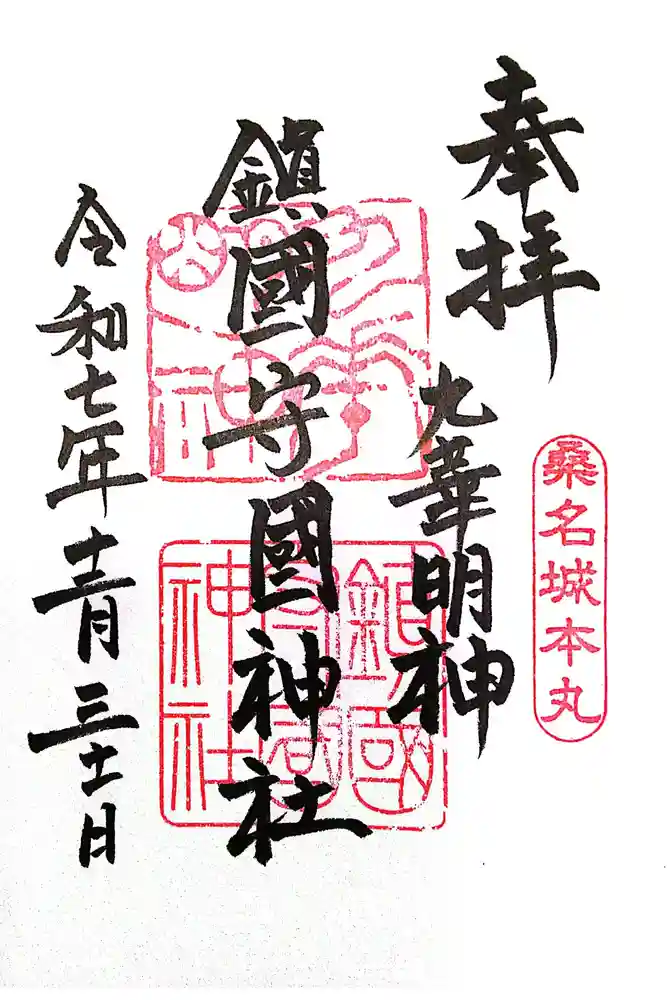 桑名城本丸
奉拝
九華明神
鎮國守國神社
令和七年十二月三十一日
鎮國守國神社